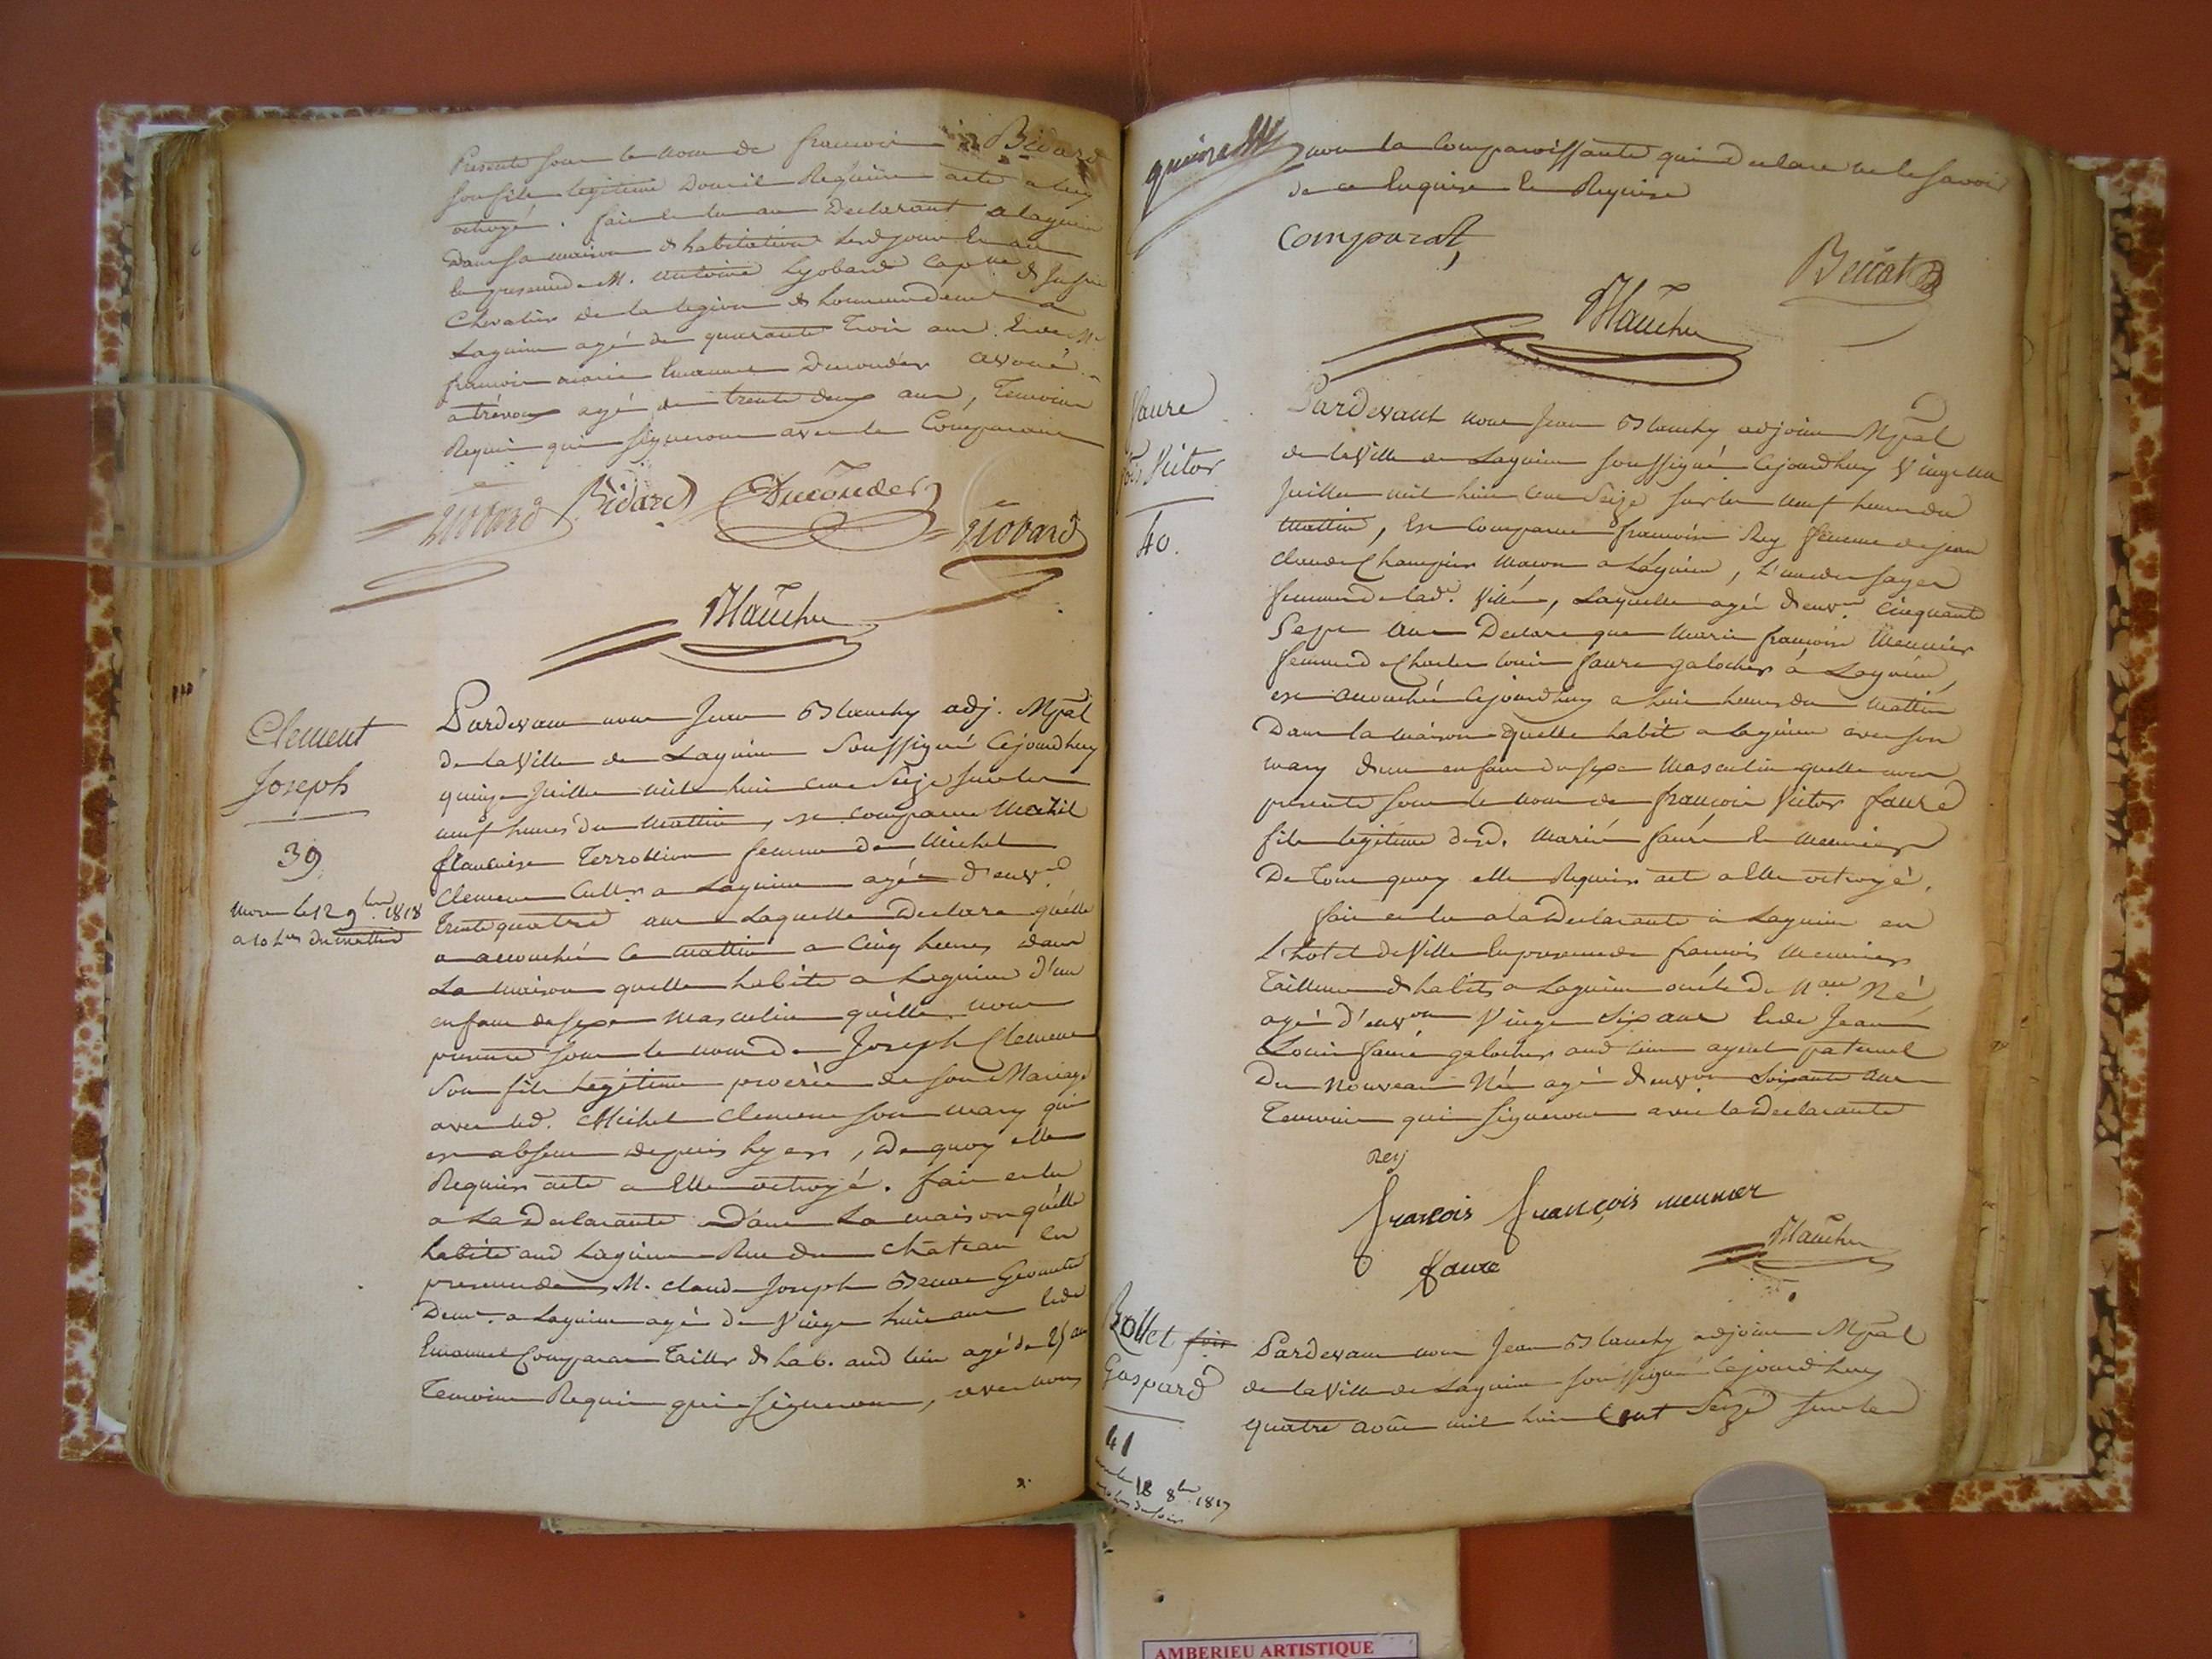 Presenté sous le nom de francois Bidard
son fils legitime Dou il Requiere acte a luy
octroyé. fait et lu au Declarant a lagnieu
Dans sa maison d'habitation lesd jour et an
En presence de M. antoine Lyobard Cap.ne
Chevalier de la legion d'honneur dem.t a
Lagnieu agé de quarante Trois ans Et de M.e
francois marie Emanuel Ducouder avoué
a trévoux agé de trente deux ans, Temoins
Requis qui signeront avec le Comparant
Liobard Bidard Ducouder Liobard
Blanchy
Clement
Joseph
39
Mort le 12 9bre 1818
a 10 h.es du mattin
Pardevant nous Jean Blanchy adj. Mpal
de la Ville de Lagnieu Soussigné Cejourdhuy
quinze Juillet mil huit cent Seize sur les
neuf heures du Mattin, est comparue
francoise Terrollion femme de Michel
Clement Cult.r a Lagnieu agée d'env.on
Trente quatre ans Laquelle Declare quélle
a accouché ce mattin a Cinq heures dans
La maison quelle habite a Lagnieu d'un
enfant de sexe Masculin quélle nous
presente sous le nom de Joseph Clement
Son fils legitime procréé de son Mariage
avec led. Michel Clement son mary qui
est absent depuis hyer, De quoy elle
Requiert acte a Elle octroyé. fait et lu
a La Declarante Dans La maison quélle
habite aud Lagnieu Rue du Chateau En
presence de M. claude Joseph Benoit Geometre
Dem.t a Lagnieu agé de Vingt huit ans Et de
Emanuel Comparat Taill.r d'hab. aud lieu agé de 25 ans
Temoins Requis qui signeront, avec nous
nous la Comparoissante qui a declaré ne le savoir
de ce Enquise Et Requise
Comparat,
Benoit
Blanchy
faure
fois Victor
40.
Pardevant nous Jean Blanchy adjoint Mpal
de la Ville de Lagnieu soussigné Cejourdhuy Vingt un
Juillet mil huit cent Seize sur les neuf heures du
Mattin, Est Comparue francoise Rey femme de Jean
Claude Champier Macon a Lagnieu, L'une des sages
femmes de lad.e Ville, Laquelle agée d'env.on Cinquante
Sept ans Declare que Marie francoise Meunier
femme de Charles Louis faure galocher a Lagnieu,
est accouchée Cejourdhuy a huit heures du Mattin
Dans la maison quelle habite a Lagnieu avec son
mary d'un enfant du sexe Masculin quelle nous
presente sous le nom de francois Victor faure
fils legitime desd. Mariés faure Et Meunier
De Tout quoy elle Requiert acte a Elle octroyé.
fait et lu a la Declarante a Lagnieu en
L'hotel de Ville En presence de francois Meunier
Tailleur d'habits a Lagnieu oncle du N.au Né
agé d'env.on Vingt Six ans Et de Jean
Louis faure galocher aud lieu ayeul paternel
Du nouveau Né agé d'env.on Soixante ans
Temoins qui signeront avec la Declarante
Rey
francois françois meunier
faure
Blanchy
Rollet fois
Gaspard
41
18 8bre 1817
Pardevant nous Jean Blanchy adjoint Mpal
de la Ville de Lagnieu soussigné Cejourdhuy
quatre aout mil huit Cent Seize sur les
AMBERIEU ARTISTIQUE